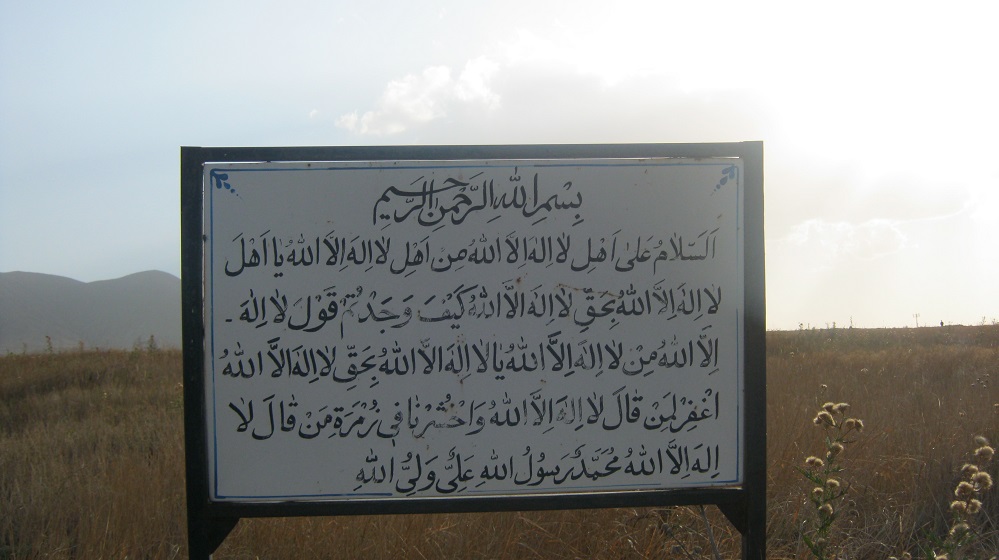 بِسْمِ اللهِ الرَّحْمنِ الرَّحیمِ
اَلسَّلامُ عَلیٰ اَهْلِ لااِلهَ اِلاَّ اللهُ مِنْ اَهْلِ لااِلهَ اِلاَّ اللهُ یا اَهْلَ
لا اِلهَ اِلاَّ اللهُ بِحَقِّ لااِلهَ اِلاَّ اللهُ کَیْفَ وَجَدْتُمْ قَوْلَ لا اِلهَ -
اِلاَّ اللهُ مِنْ لااِلهَ اِلاَّ اللهُ یا لااِلهَ اِلاَّ اللهُ بِحَقِّ لااِلهَ اِلاَّ اللهُ
اغْفِرْ لِمَنْ قالَ لااِلهَ اِلاَّ اللهُ وَاحْشُرْنا فی زُمْرَةِ مَنْ قالَ لا
اِلهَ اِلاَّ اللهُ مُحَمَّدٌ رَسُولُ اللهِ عَلِیٌّ وَلِیُّ اللهِ